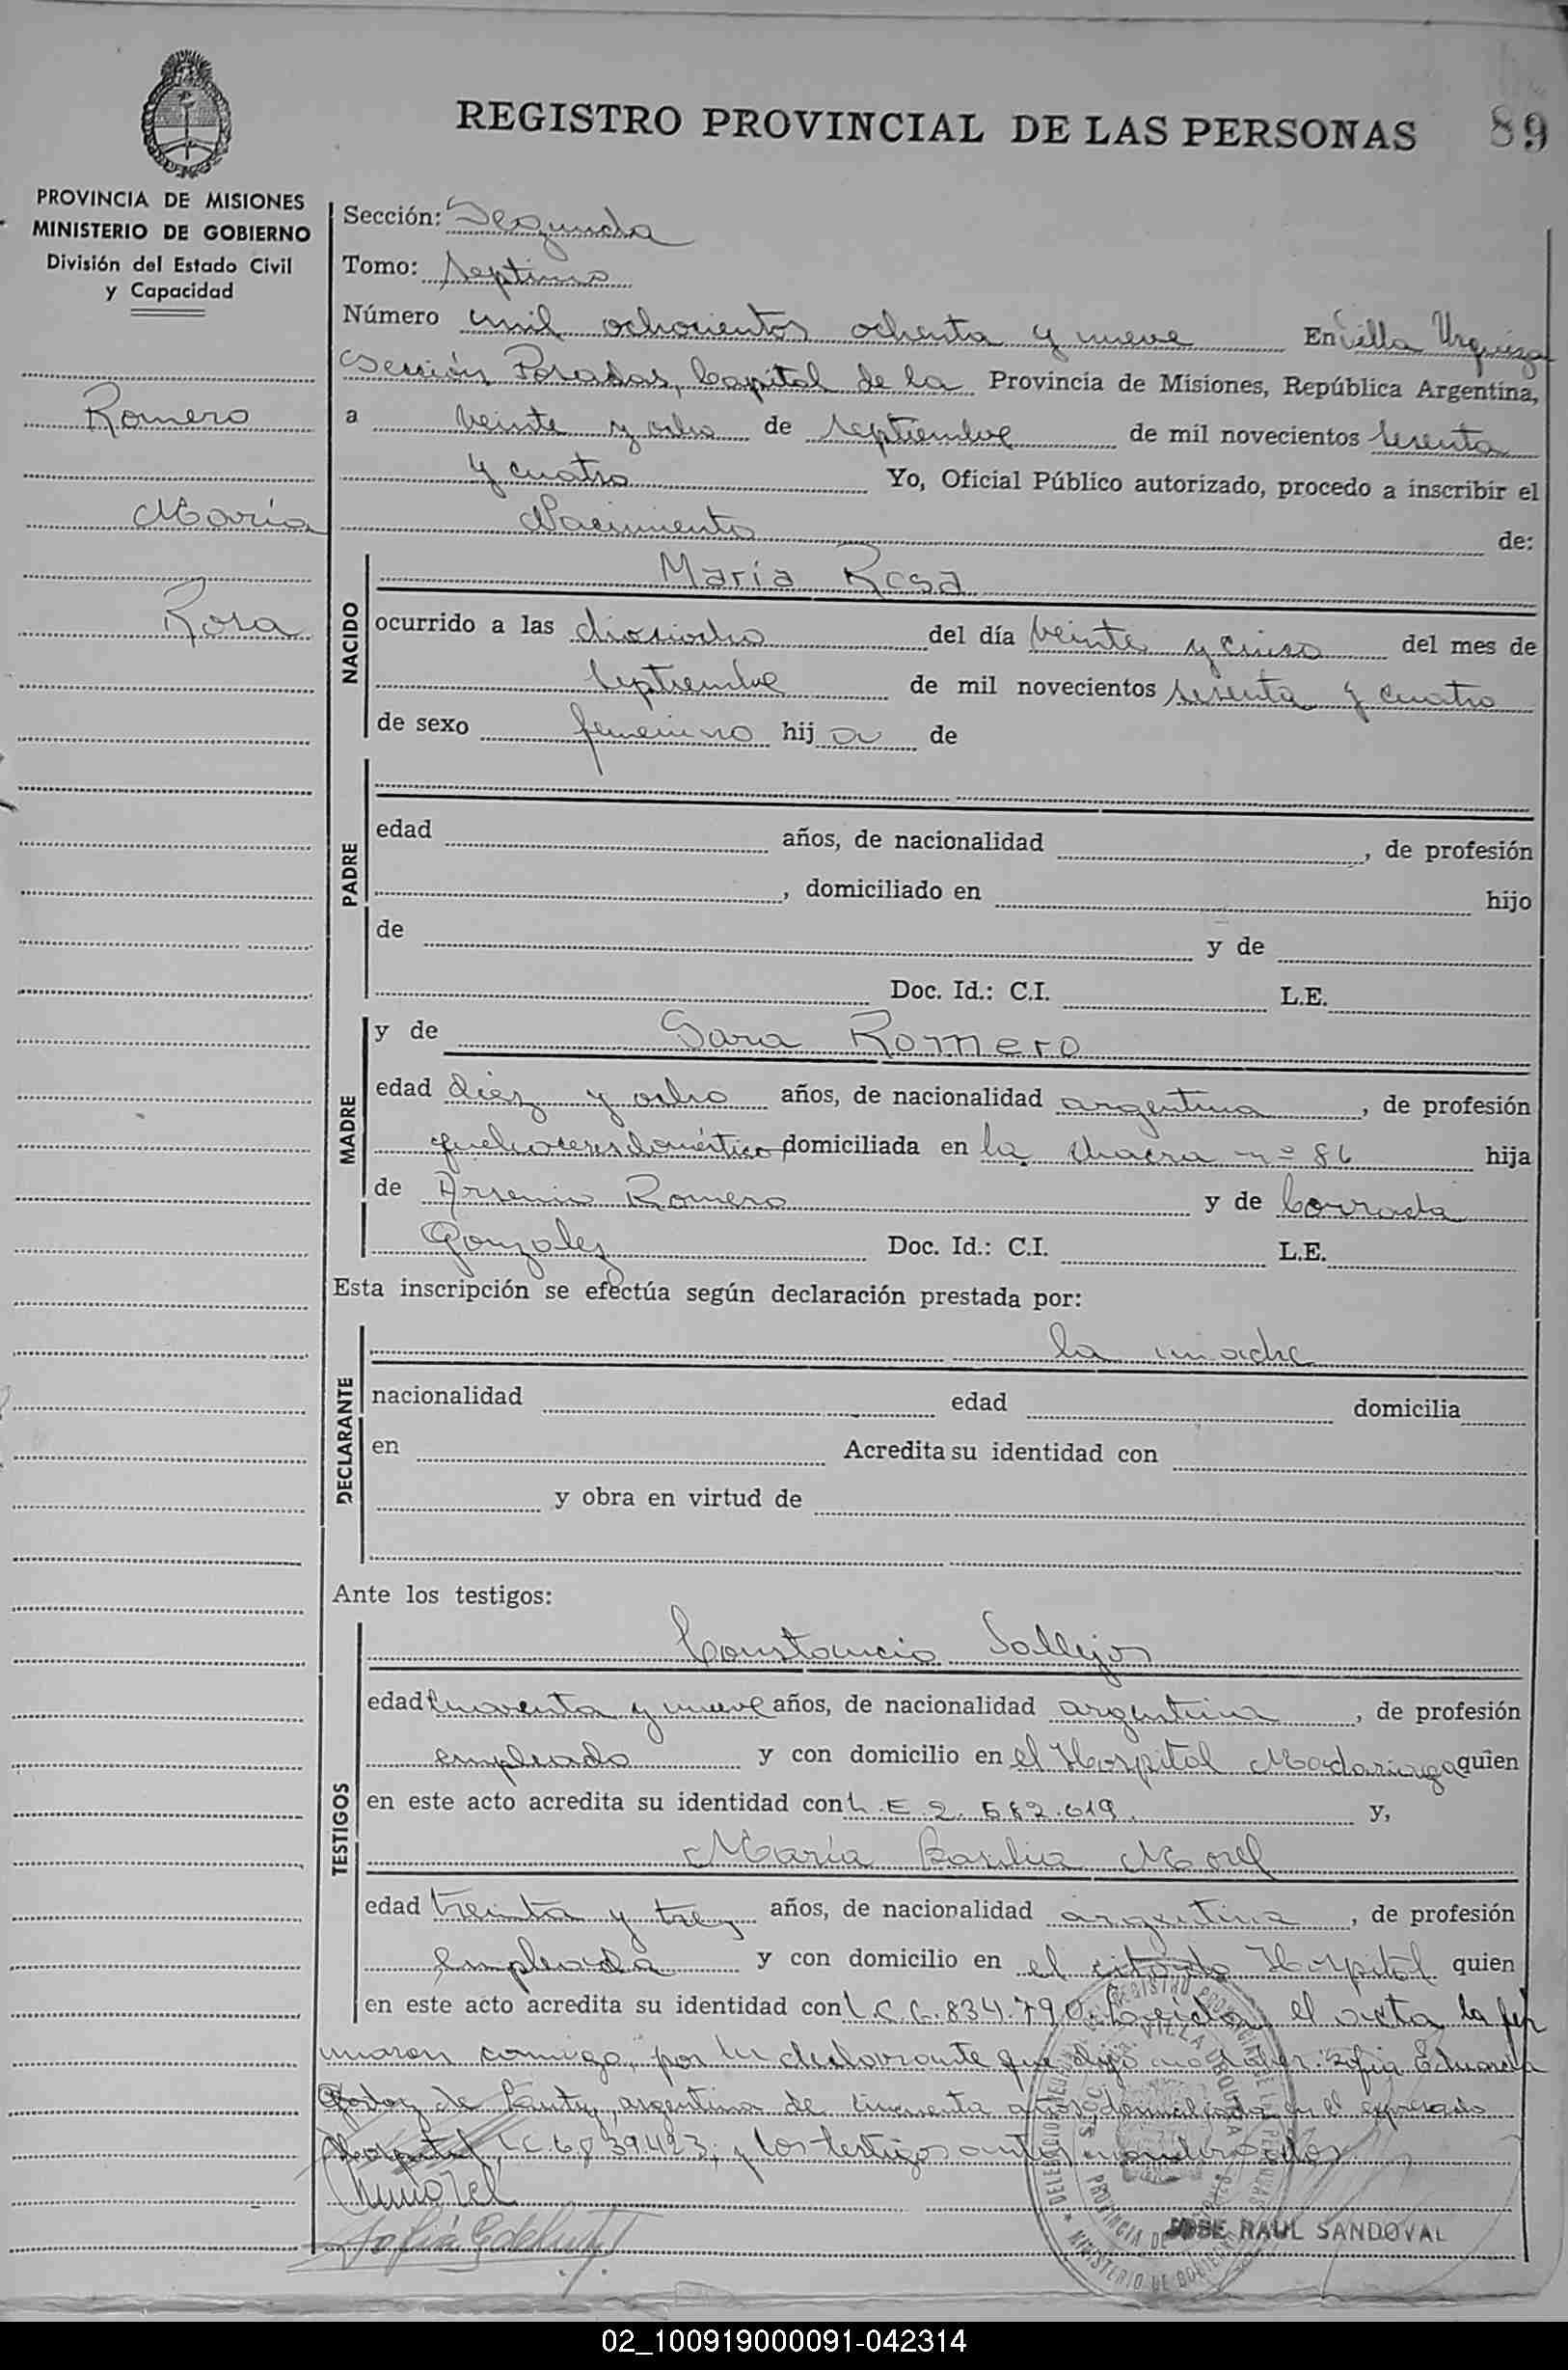 REGISTRO PROVINCIAL DE LAS PERSONAS 89
PROVINCIA DE MISIONES
MINISTERIO DE GOBIERNO
División del Estado Civil
y Capacidad
Romero
María
Rosa
Sección: Segunda
Tomo: Septimo
Número mil ochocientos ochenta y nueve En Villa Urquiza
Sección Posadas, Capital de la Provincia de Misiones, República Argentina,
a veinte y ocho de septiembre de mil novecientos sesenta
y cuatro Yo, Oficial Público autorizado, procedo a inscribir el
Nacimiento de:
NACIDO
María Rosa
ocurrido a las dieciocho del día veinte y cinco del mes de
septiembre de mil novecientos sesenta y cuatro
de sexo femenino hija de
PADRE
edad años, de nacionalidad , de profesión
, domiciliado en hijo
de y de
Doc. Id.: C.I. L.E.
MADRE
y de Sara Romero
edad diez y ocho años, de nacionalidad argentina, de profesión
quehaceres doméstico domiciliada en la chacra nº 86 hija
de Arsenio Romero y de Corrada
Gonzalez Doc. Id.: C.I. L.E.
Esta inscripción se efectúa según declaración prestada por:
DECLARANTE
la madre
nacionalidad edad domicilia
en Acredita su identidad con
y obra en virtud de
Ante los testigos:
TESTIGOS
Constancio Vallejos
edad cuarenta y nueve años, de nacionalidad argentina, de profesión
empleado y con domicilio en el Hospital Madariaga quien
en este acto acredita su identidad con L.E. 2.582.619. y,
María Basilia Morel
edad treinta y tres años, de nacionalidad argentina, de profesión
empleada y con domicilio en el citado Hospital quien
en este acto acredita su identidad con L.C. 6.834.790. Leída el acta la fir
maron conmigo, por la declarante que dijo no saber: Sofia Eduarda
Godoy de argentina de cincuenta años, domiciliada en el expresado
Hospital, L.C. 6.839.423; y los testigos antes nombrados
JOSE RAUL SANDOVAL
02_100919000091-042314